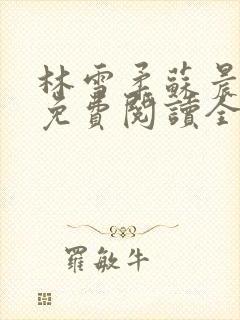 林雪柔蘇晨
免費閱讀全
羅敏牛